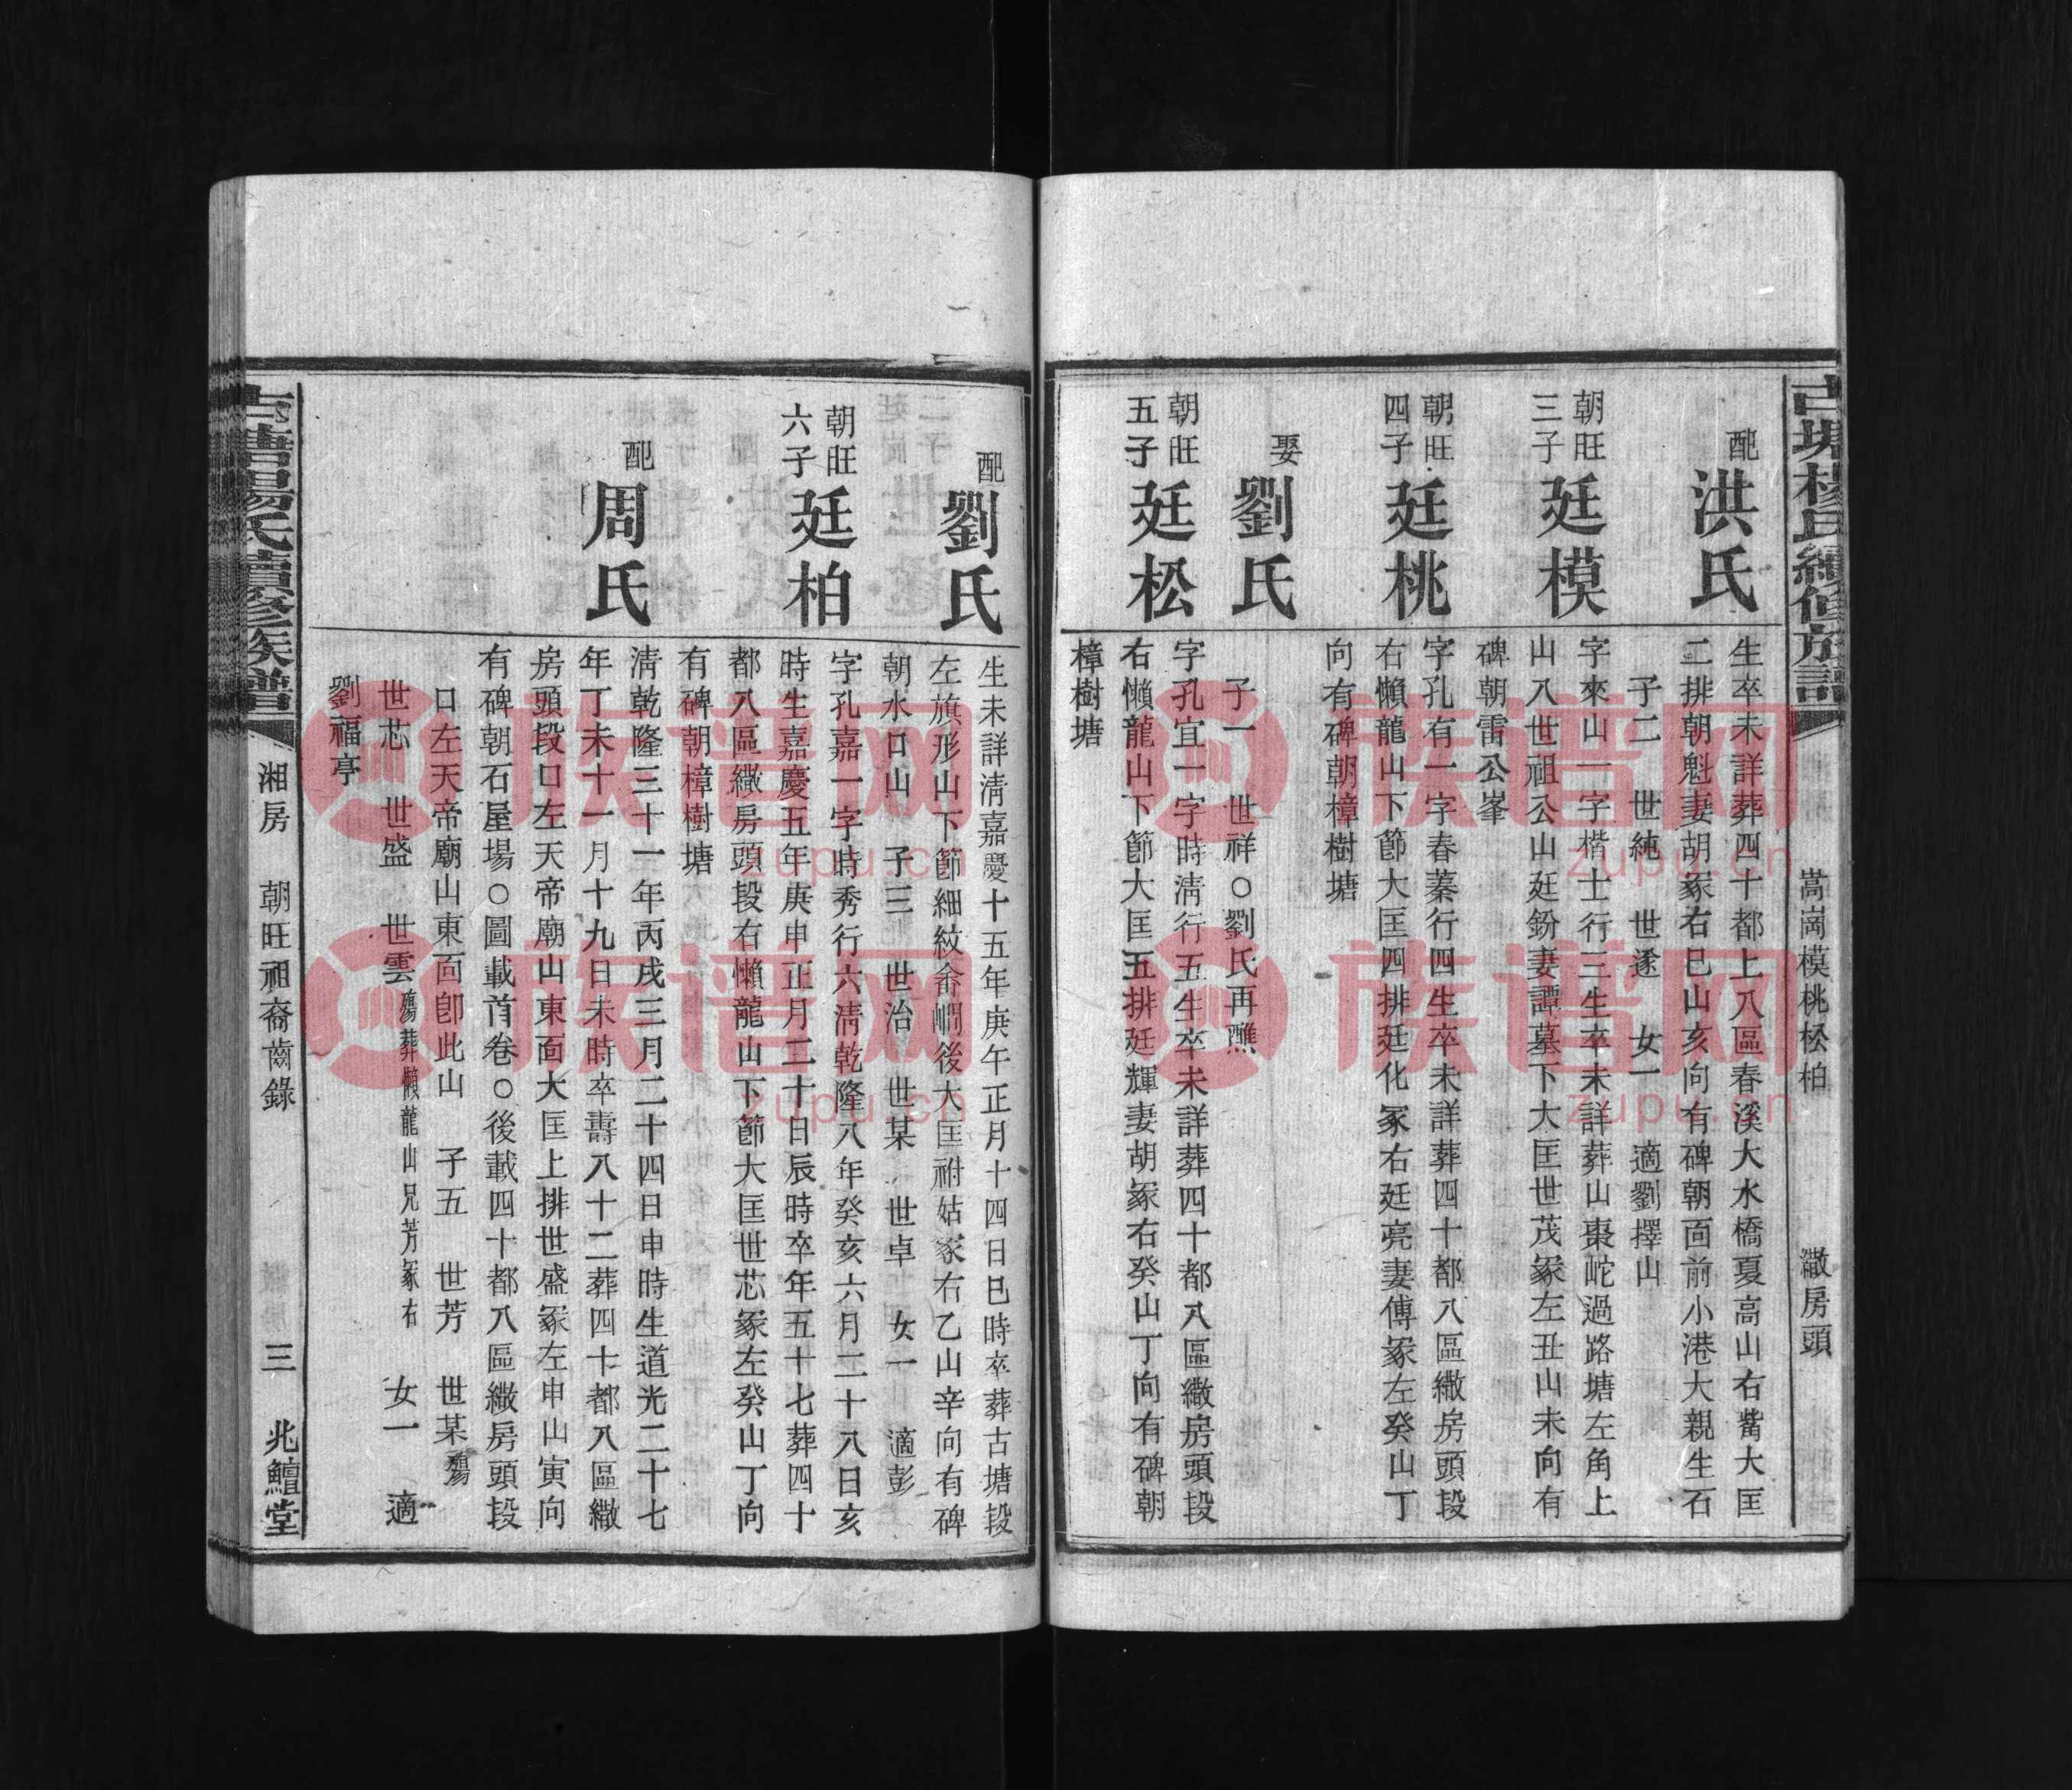 古塘楊氏續修族譜
嵩崗模桃松柏
繖房頭
配
洪氏
生卒未詳葬四十都上八區春溪大水橋夏高山右觜大匡
二排朝魁妻胡冢右巳山亥向有碑朝面前小港大親生石
子二 世純 世遂 女一 適劉擇山
朝旺
三子
廷模
字來山一字楷士行三生卒未詳葬山棗岮過路塘左角上
山八世祖公山廷鈖妻譚墓下大匡世茂冢左丑山未向有
碑朝雷公峯
朝旺
四子
廷桃
字孔有一字春蓁行四生卒未詳葬四十都八區繖房頭段
右懶龍山下節大匡四排廷化冢右廷亮妻傅冢左癸山丁
向有碑朝樟樹塘
娶
劉氏
子一 世祥○劉氏再醮
朝旺
五子
廷松
字孔宜一字時清行五生卒未詳葬四十都八區繖房頭段
右懶龍山下節大匡五排廷輝妻胡冢右癸山丁向有碑朝
樟樹塘
配
劉氏
生未詳清嘉慶十五年庚午正月十四日巳時卒葬古塘段
左旗形山下節細紋畬㟅後大匡祔姑冢右乙山辛向有碑
朝水口山 子三 世治 世某 世卓 女一 適彭
朝旺
六子
廷柏
字孔嘉一字時秀行六清乾隆八年癸亥六月二十八日亥
時生嘉慶五年庚申正月二十日辰時卒年五十七葬四十
都八區繖房頭段右懶龍山下節大匡世芯冢左癸山丁向
有碑朝樟樹塘
配
周氏
清乾隆三十一年丙戌三月二十四日申時生道光二十七
年丁未十一月十九日未時卒壽八十二葬四十都八區繖
房頭段口左天帝廟山東面大匡上排世盛冢左申山寅向
有碑朝石屋場○圖載首卷○後載四十都八區繖房頭段
口左天帝廟山東面卽此山 子五 世芳 世某殤
世芯 世盛 世雲殤葬懶龍山兄芳冢右 女一 適
劉福亭
古塘楊氏續修族譜
湘房 朝旺祖裔齒錄
三
兆鱣堂
族谱网
zupu.cn
族谱网
zupu.cn
族谱网
zupu.cn
族谱网
zupu.cn